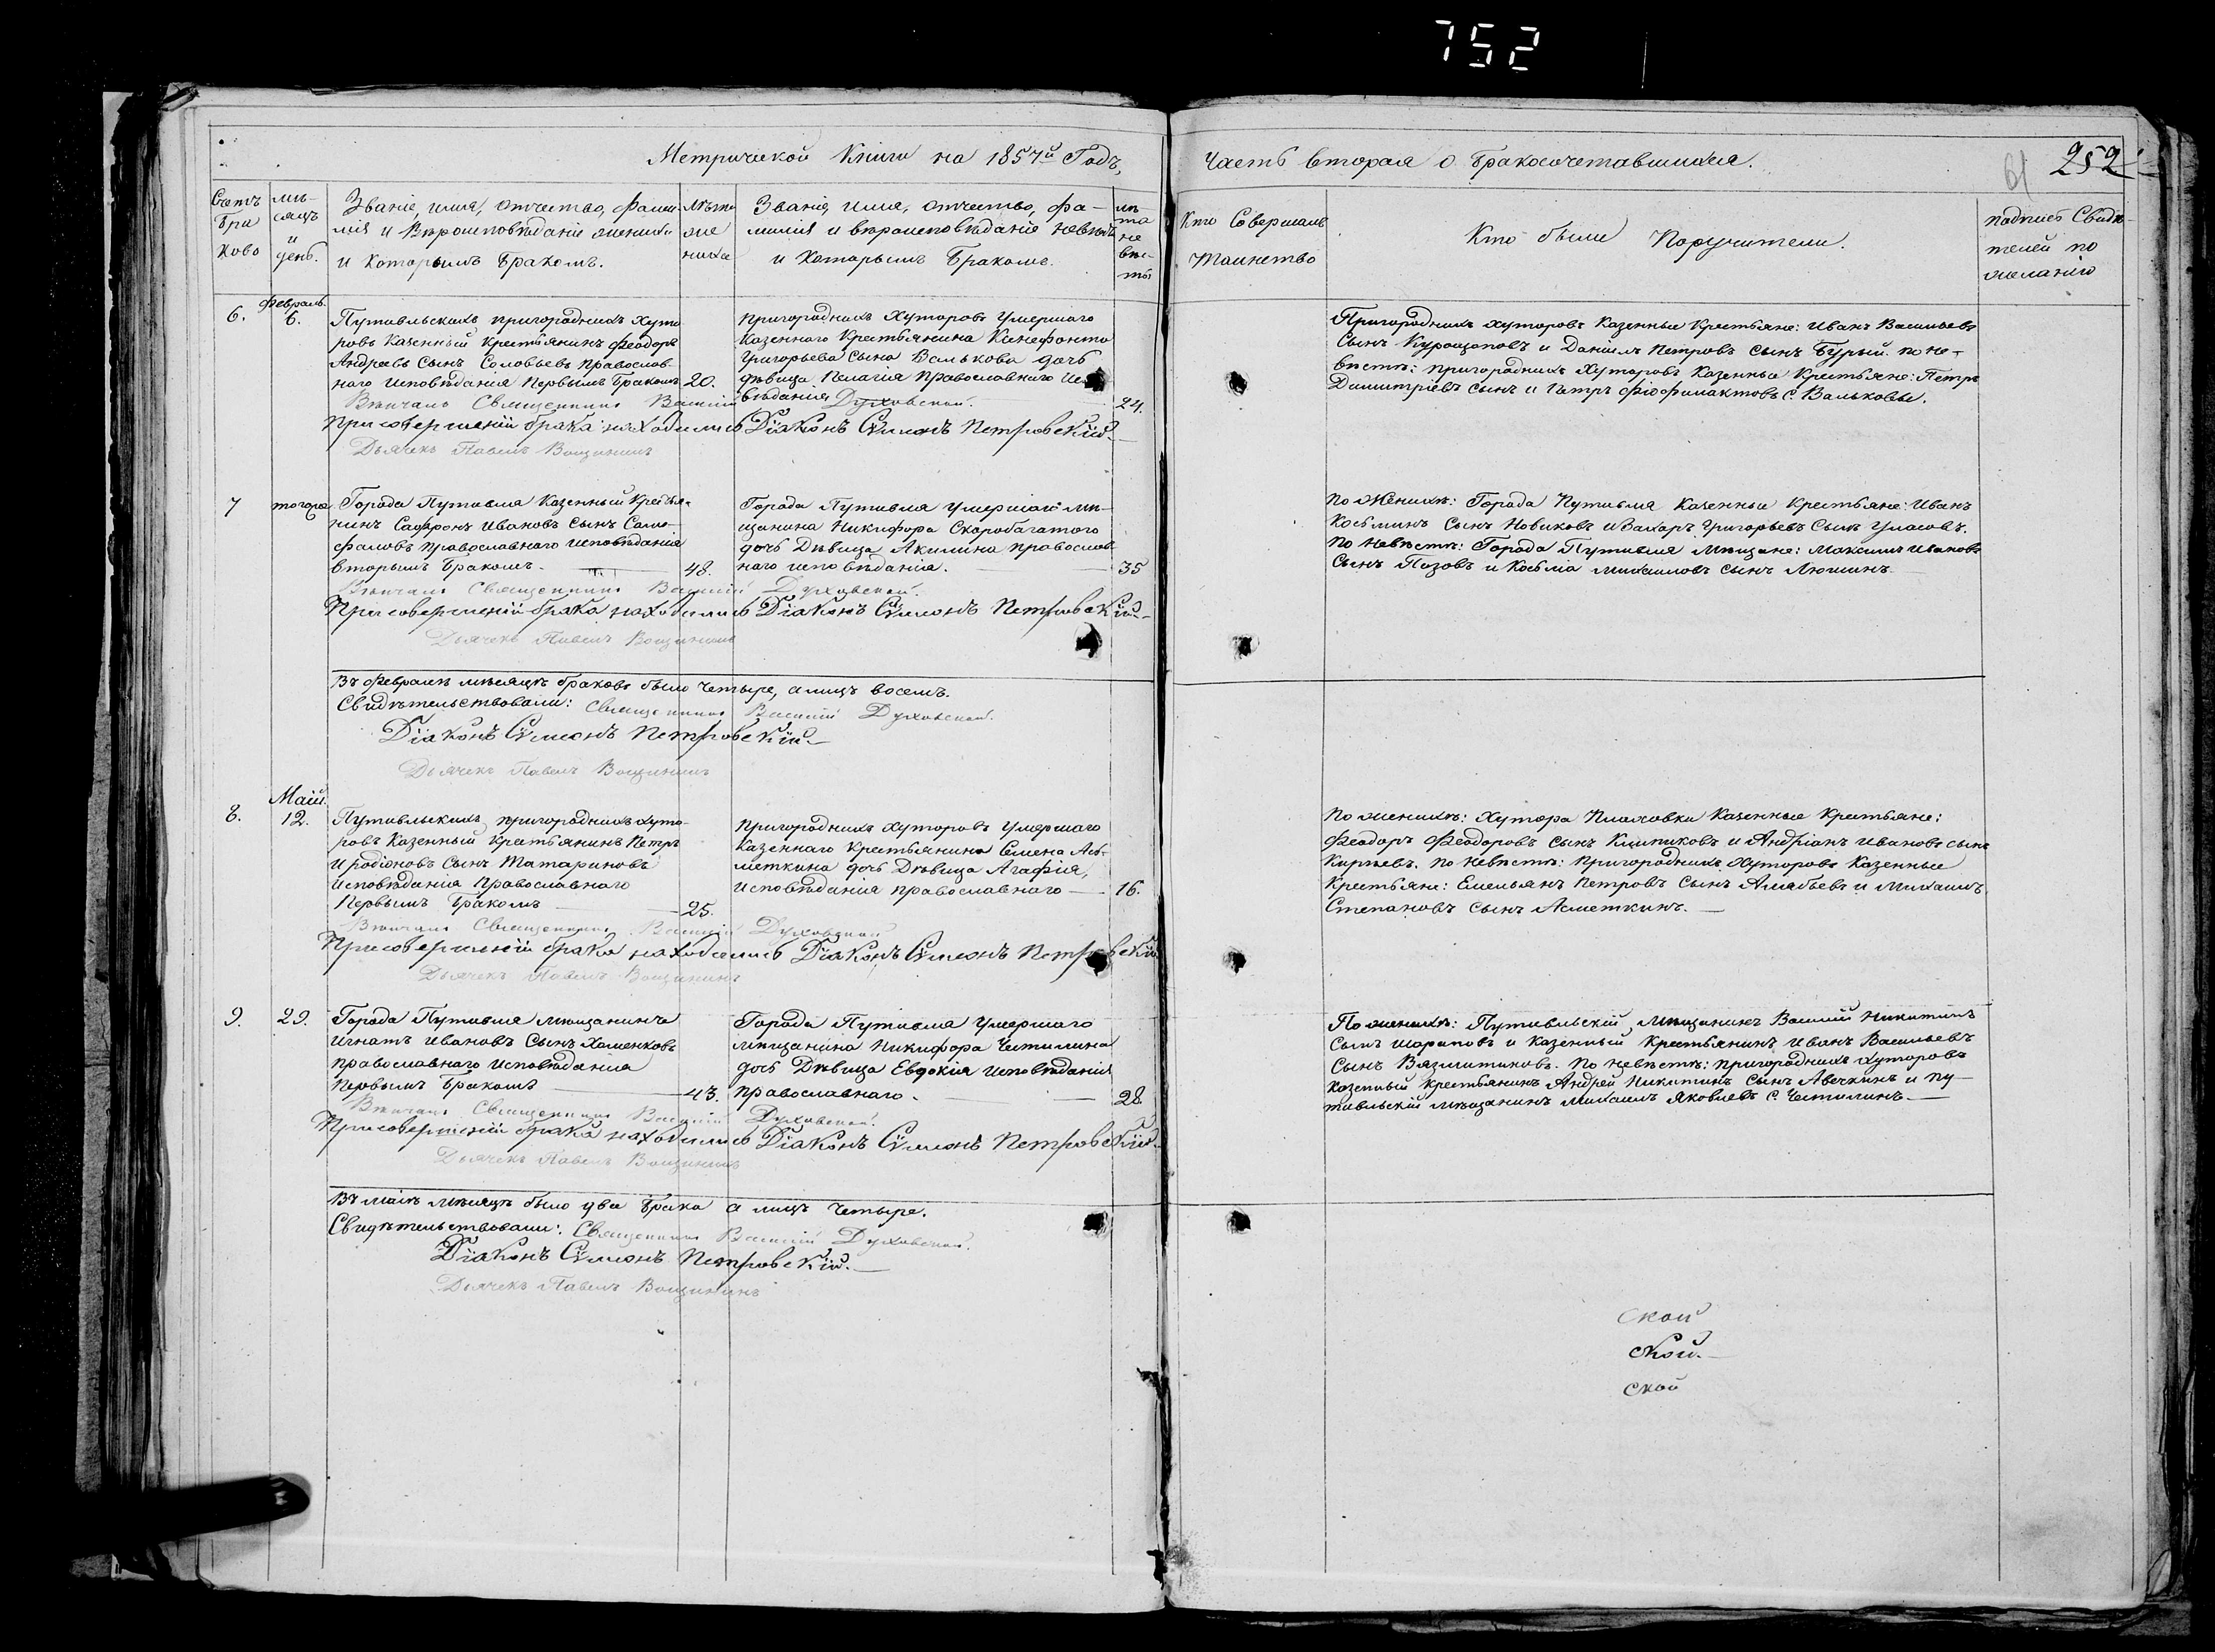 752
Метрической Книги на 1857й Годъ,
Часть вторая о Бракосочетавшихся.
61
252
Счетъ Браковъ
мѣсяцъ и день.
Званіе, имя, отчество, фамилія и Вѣроисповѣданіе жениха и Которымъ Бракомъ.
Лѣта жениха
Званіе, имя, отчество, фамилія и вѣроисповѣданіе невѣсты и Которымъ Бракомъ.
лѣта невѣсты
Кто Совершалъ Таинство
Кто были Поручители.
подпись Свидѣтелей по желанію
6.
Февраль.
6.
Путивльскихъ пригородныхъ хуто-
ровъ Казенный крестьянинъ Феодоръ
Андреевъ Сынъ Соловьевъ православ-
наго исповѣданія Первымъ Бракомъ
20.
пригородныхъ Хуторовъ Умершаго
Казеннаго Крестьянина Ксенофонта
Григорьева Сына Валькова дочь
дѣвица Пелагія православнаго
вѣданія
21.
Пригородныхъ хуторовъ Казенные Крестьяне: Иванъ Васильевъ
Сынъ и Даніилъ Петровъ сынъ Бурый. по не-
вѣстѣ: пригородныхъ Хуторовъ Казенные Крестьяне: Петръ
Димитріевъ сынъ и Петръ Фіофилактовъ С. Вальковы.
Вѣнчалъ Священникъ Василій Духовской.
При совершеніи брака находились Діаконъ Сѵмеонъ Петровскій.
Дьячекъ Павелъ Вощининъ
7
тогоже
Города Путивля Казенный Крестья-
нинъ Сафронъ Ивановъ Сынъ Само-
фаловъ православнаго исповѣданія
вторымъ Бракомъ.
48.
Города Путивля умершаго мѣ-
щанина Никифора Скоробогатого
дочь Дѣвица Акилина православ-
наго исповѣданія.
35
По Женихѣ: Города Путивля Казенные Крестьяне: Иванъ
Косьминъ Сынъ Новиковъ и Захаръ Григорьевъ Сынъ Уласовъ.
По Невѣстѣ: Города Путивля Мѣщане: Максимъ Ивановъ
Сынъ Позовъ и Косьма Михаиловъ Сынъ Люшинъ.
Вѣнчалъ Священникъ Василій Духовской.
При совершеніи брака находились Діаконъ Сѵмеонъ Петровскій.
Дьячекъ Павелъ Вощининъ
Въ Февралѣ мѣсяцѣ браковъ было Четыре, а лицъ восемь.
Свидѣтельствовали: Священникъ Василій Духовской.
Діаконъ Сѵмеонъ Петровскій.
Дьячекъ Павелъ Вощининъ
8.
Маій.
12.
Путивльскихъ пригородныхъ хуто-
ровъ Казенный Крестьянинъ Петръ
Иродіоновъ Сынъ Татариновъ
Исповѣданія Православнаго
Первымъ Бракомъ
25.
Пригородныхъ хуторовъ Умершаго
Казеннаго Крестьянина Семена Ас-
меткина дочь Дѣвица Агафія,
исповѣданія православнаго
16.
По женихѣ: Хутора Казенные Крестьяне:
Феодоръ Феодоровъ сынъ и Андріанъ Ивановъ сынъ
Кирѣевъ. По невѣстѣ: пригородныхъ Хуторовъ Казенные
Крестьяне: Емельянъ Петровъ Сынъ Алябьевъ и Михаилъ
Степановъ сынъ Асметкинъ.
Вѣнчалъ Священникъ Василій Духовской
При совершеніи брака находились Діаконъ Сѵмеонъ Петровскій.
Дьячекъ Павелъ Вощининъ
9.
29.
Города Путивля мѣщанинъ
Игнатъ Ивановъ Сынъ Хоменковъ
православнаго исповѣданія
Первымъ Бракомъ
43.
Города Путивля Умершаго
мѣщанина Никифора Честилина
дочь Дѣвица Евдокія исповѣданія
православнаго.
28
По женихѣ: Путивльскій Мѣщанинъ Василій Никитинъ
Сынъ Шараповъ и Казенный крестьянинъ Иванъ Васильевъ
Сынъ Вязмитиновъ. По невѣстѣ: пригородныхъ хуторовъ
Казенный крестьянинъ Андрей Никитинъ Сынъ Авечкинъ и пу-
тивльскій мѣщанинъ Михаилъ Яковлевъ С. Честилинъ.
Вѣнчалъ Священникъ Василій Духовской.
При совершеніи брака находились Діаконъ Сѵмеонъ Петровскій.
Дьячекъ Павелъ Вощининъ
Въ маіѣ мѣсяцѣ было два Брака а лицъ Четыре.
Свидѣтельствовали: Священникъ Василій Духовской.
Діаконъ Сѵмеонъ Петровскій.
Дьячекъ Павелъ Вощининъ
ской
ской.
ской